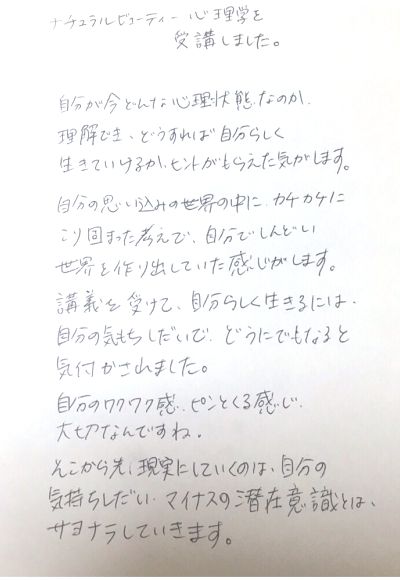 ナチュラルビューティー心理学を
受講しました。
自分が今どんな心理状態なのか、
理解でき、どうすれば自分らしく
生きていけるか、ヒントがもらえた気がします。
自分の思い込みの世界の中に、カチカチに
こり固まった考えで、自分でしんどい
世界を作り出していた感じがします。
講義を受けて、自分らしく生きるには、
自分の気もちしだいで、どうにでもなると
気付かされました。
自分のワクワク感、ピンとくる感じ、
大切なんですね。
そこから先、現実にしていくのは、自分の
気持ちしだい、マイナスの潜在意識とは、
サヨナラしていきます。